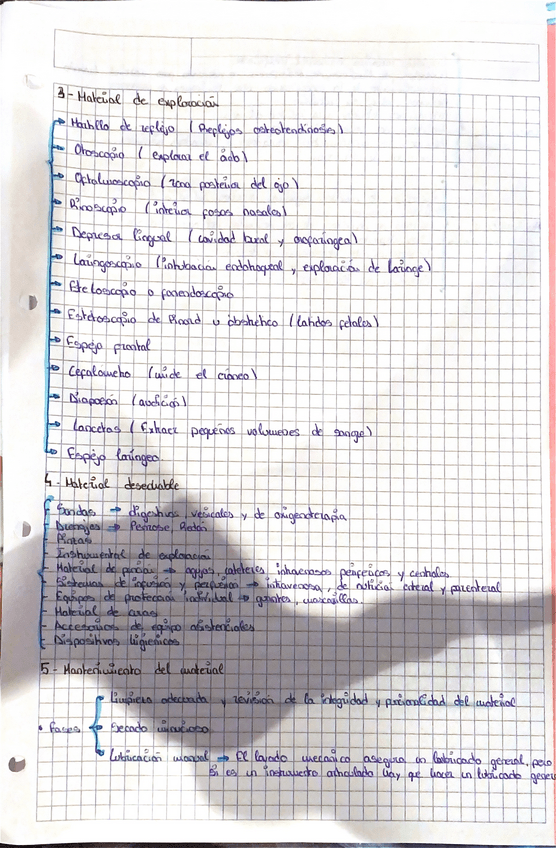 3- Material de exploración
→ Martillo de reflejo (Reflejos osteotendinosos)
→ Otoscopio (explorar el oído)
→ Oftalmoscopio (zona posterior del ojo)
→ Rinoscopio (interior fosas nasales)
→ Depresor lingual (cavidad bucal y orofaríngea)
→ Laringoscopio (intubación endotraqueal y exploración de laringe)
→ Estetoscopio o fonendoscopio
→ Estetoscopio de Pinard u obstétrico (latidos fetales)
→ Espejo frontal
→ Cefalómetro (mide el cráneo)
→ Diapasón (audición)
→ Lancetas (Extraer pequeños volumenes de sangre)
→ Espejo laríngeo.
4- Material desechable
- Sondas → digestivas, vesicales y de oxigenoterapia
- Drenajes → Penrose, Redón
- Pinzas
- Instrumental de exploración
- Material de punción → agujas, catéteres intravenosos periféricos y centrales
- Sistemas de infusión y perfusión → intravenosa, de nutrición enteral y parenteral
- Equipos de protección individual → guantes, mascarillas.
- Material de curas
- Accesorios de equipo asistenciales
- Dispositivos higiénicos
5- Mantenimiento del material
→ Limpieza adecuada y revisión de la integridad y funcionalidad del material
• Fases → Secado minucioso
→ Lubricación manual → El lavado mecánico asegura un lubricado general, pero
si es un instrumento articulado hay que hacer un lubricado